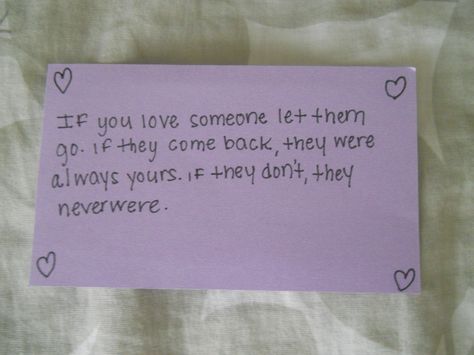 IF you love someone let them
go. if they come back, they were
always yours. iF they don't, they
never were.